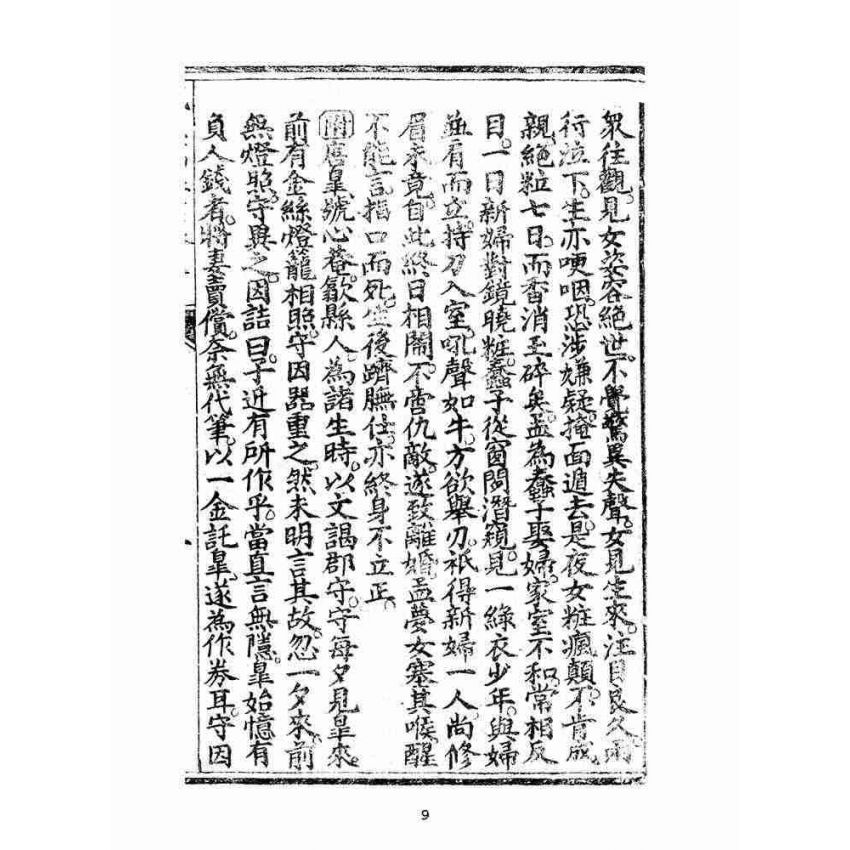 眾往觀。見女姿容絕世。不覺驚異失聲。女見生來。注目良久。兩
行泣下。生亦哽咽。恐涉嫌疑。掩面遁去。是夜女粧瘋顛。不肯成
親。絕粒七日。而香消玉碎矣。孟為蠢子娶婦。家室不和。常相反
目。一日新婦對鏡曉粧。蠢子從窗間潛窺。見一綠衣少年。與婦
並肩而立。持刀入室。吼聲如牛。方欲舉刃。祇得新婦一人。尚修
眉未竟。自此終日相鬧。不啻仇敵。遂致離婚。孟夢女塞其喉。醒
不能言。指口而死。生後躋膴仕。亦終身不立正。
附唐皐。號心菴。歙縣人。為諸生時。以文謁郡守。守每夕見皐來。
前有金絲燈籠相照。守因器重之。然未明言其故。忽一夕來。前
無燈照。守異之。因詰曰。子近有所作乎。當直言無隱。皐始憶有
負人錢者。將妻賣償。奈無代筆。以一金託皐。遂為作券耳。守因
9